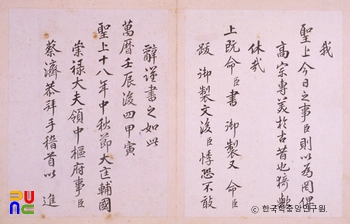 哉
聖上今日之事臣則以爲罔俾
高宗專美於古昔也猗歟
休哉
上旣命臣書 御製又 命臣
跋 御製文後臣悸恐不敢
辭謹書之如此
萬曆壬辰後四甲寅
聖上十八年中秋節大匡輔國
崇祿大夫領中樞府事臣
蔡濟恭拜手稽首以 進
ⓒ 한국학중앙연구원